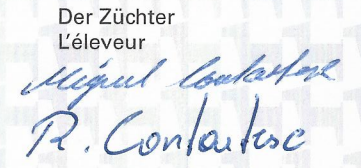 Der Züchter
L'éleveur
Miguel Contartese
R. Contartese